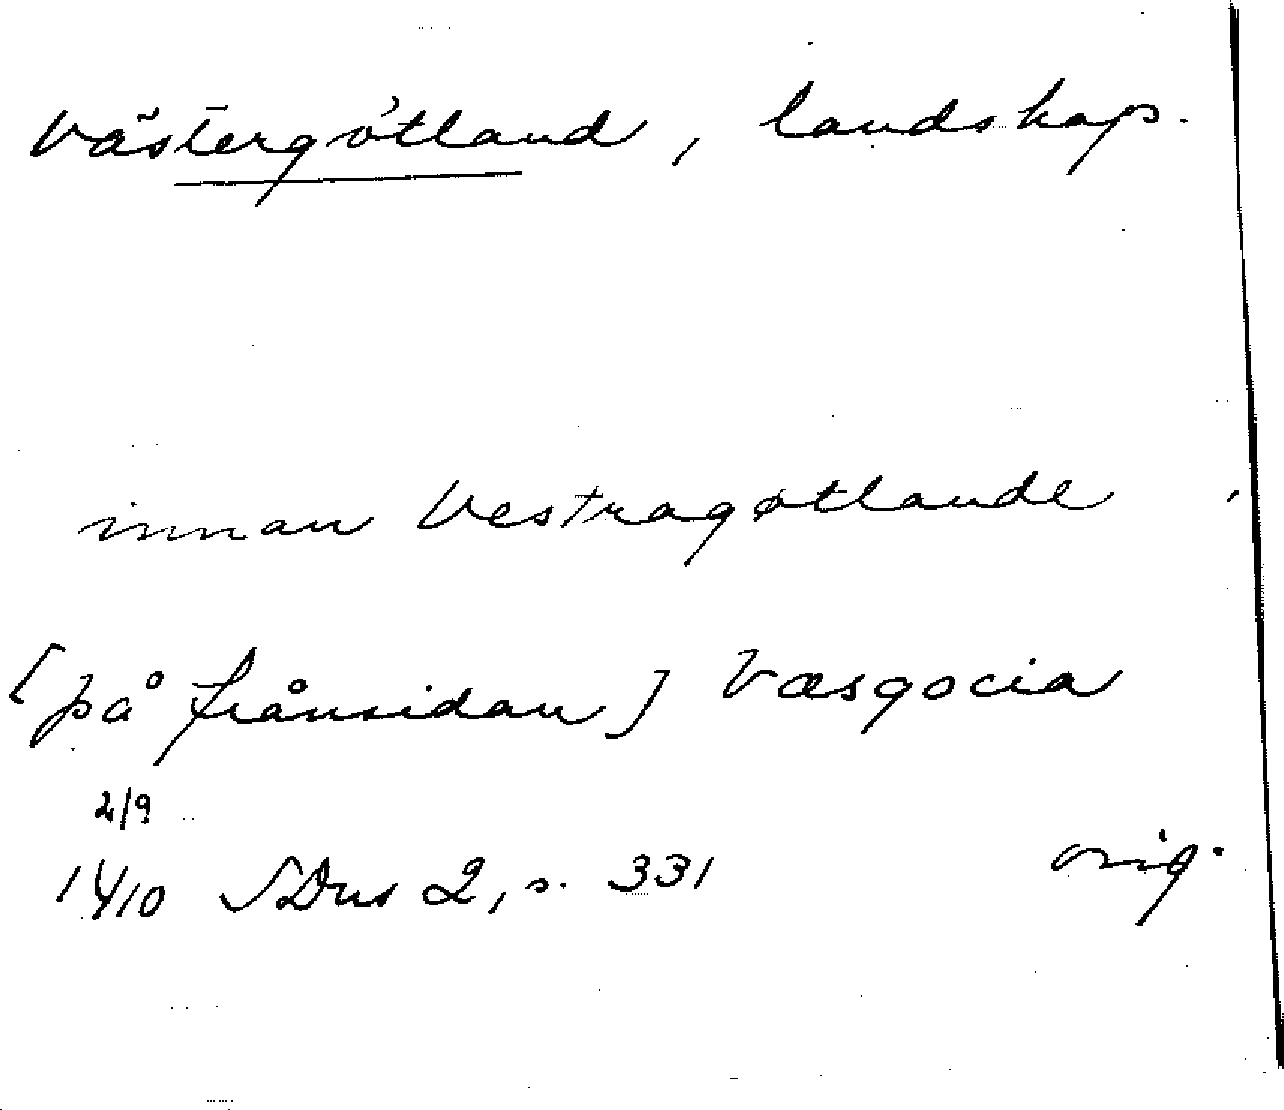 Västergötland, landskap.
innan Vestragøtlande
[på frånsidan] Væsgocia
2/9
1410 SDns 2, s. 331 orig.